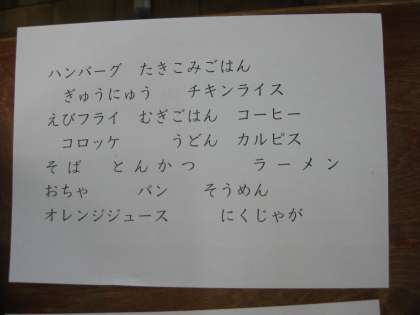 ハンバーグ　たきこみごはん
ぎゅうにゅう　チキンライス
えびフライ　むぎごはん　コーヒー
コロッケ　うどん　カルピス
そば　とんかつ　ラーメン
おちゃ　パン　そうめん
オレンジジュース　にくじゃが